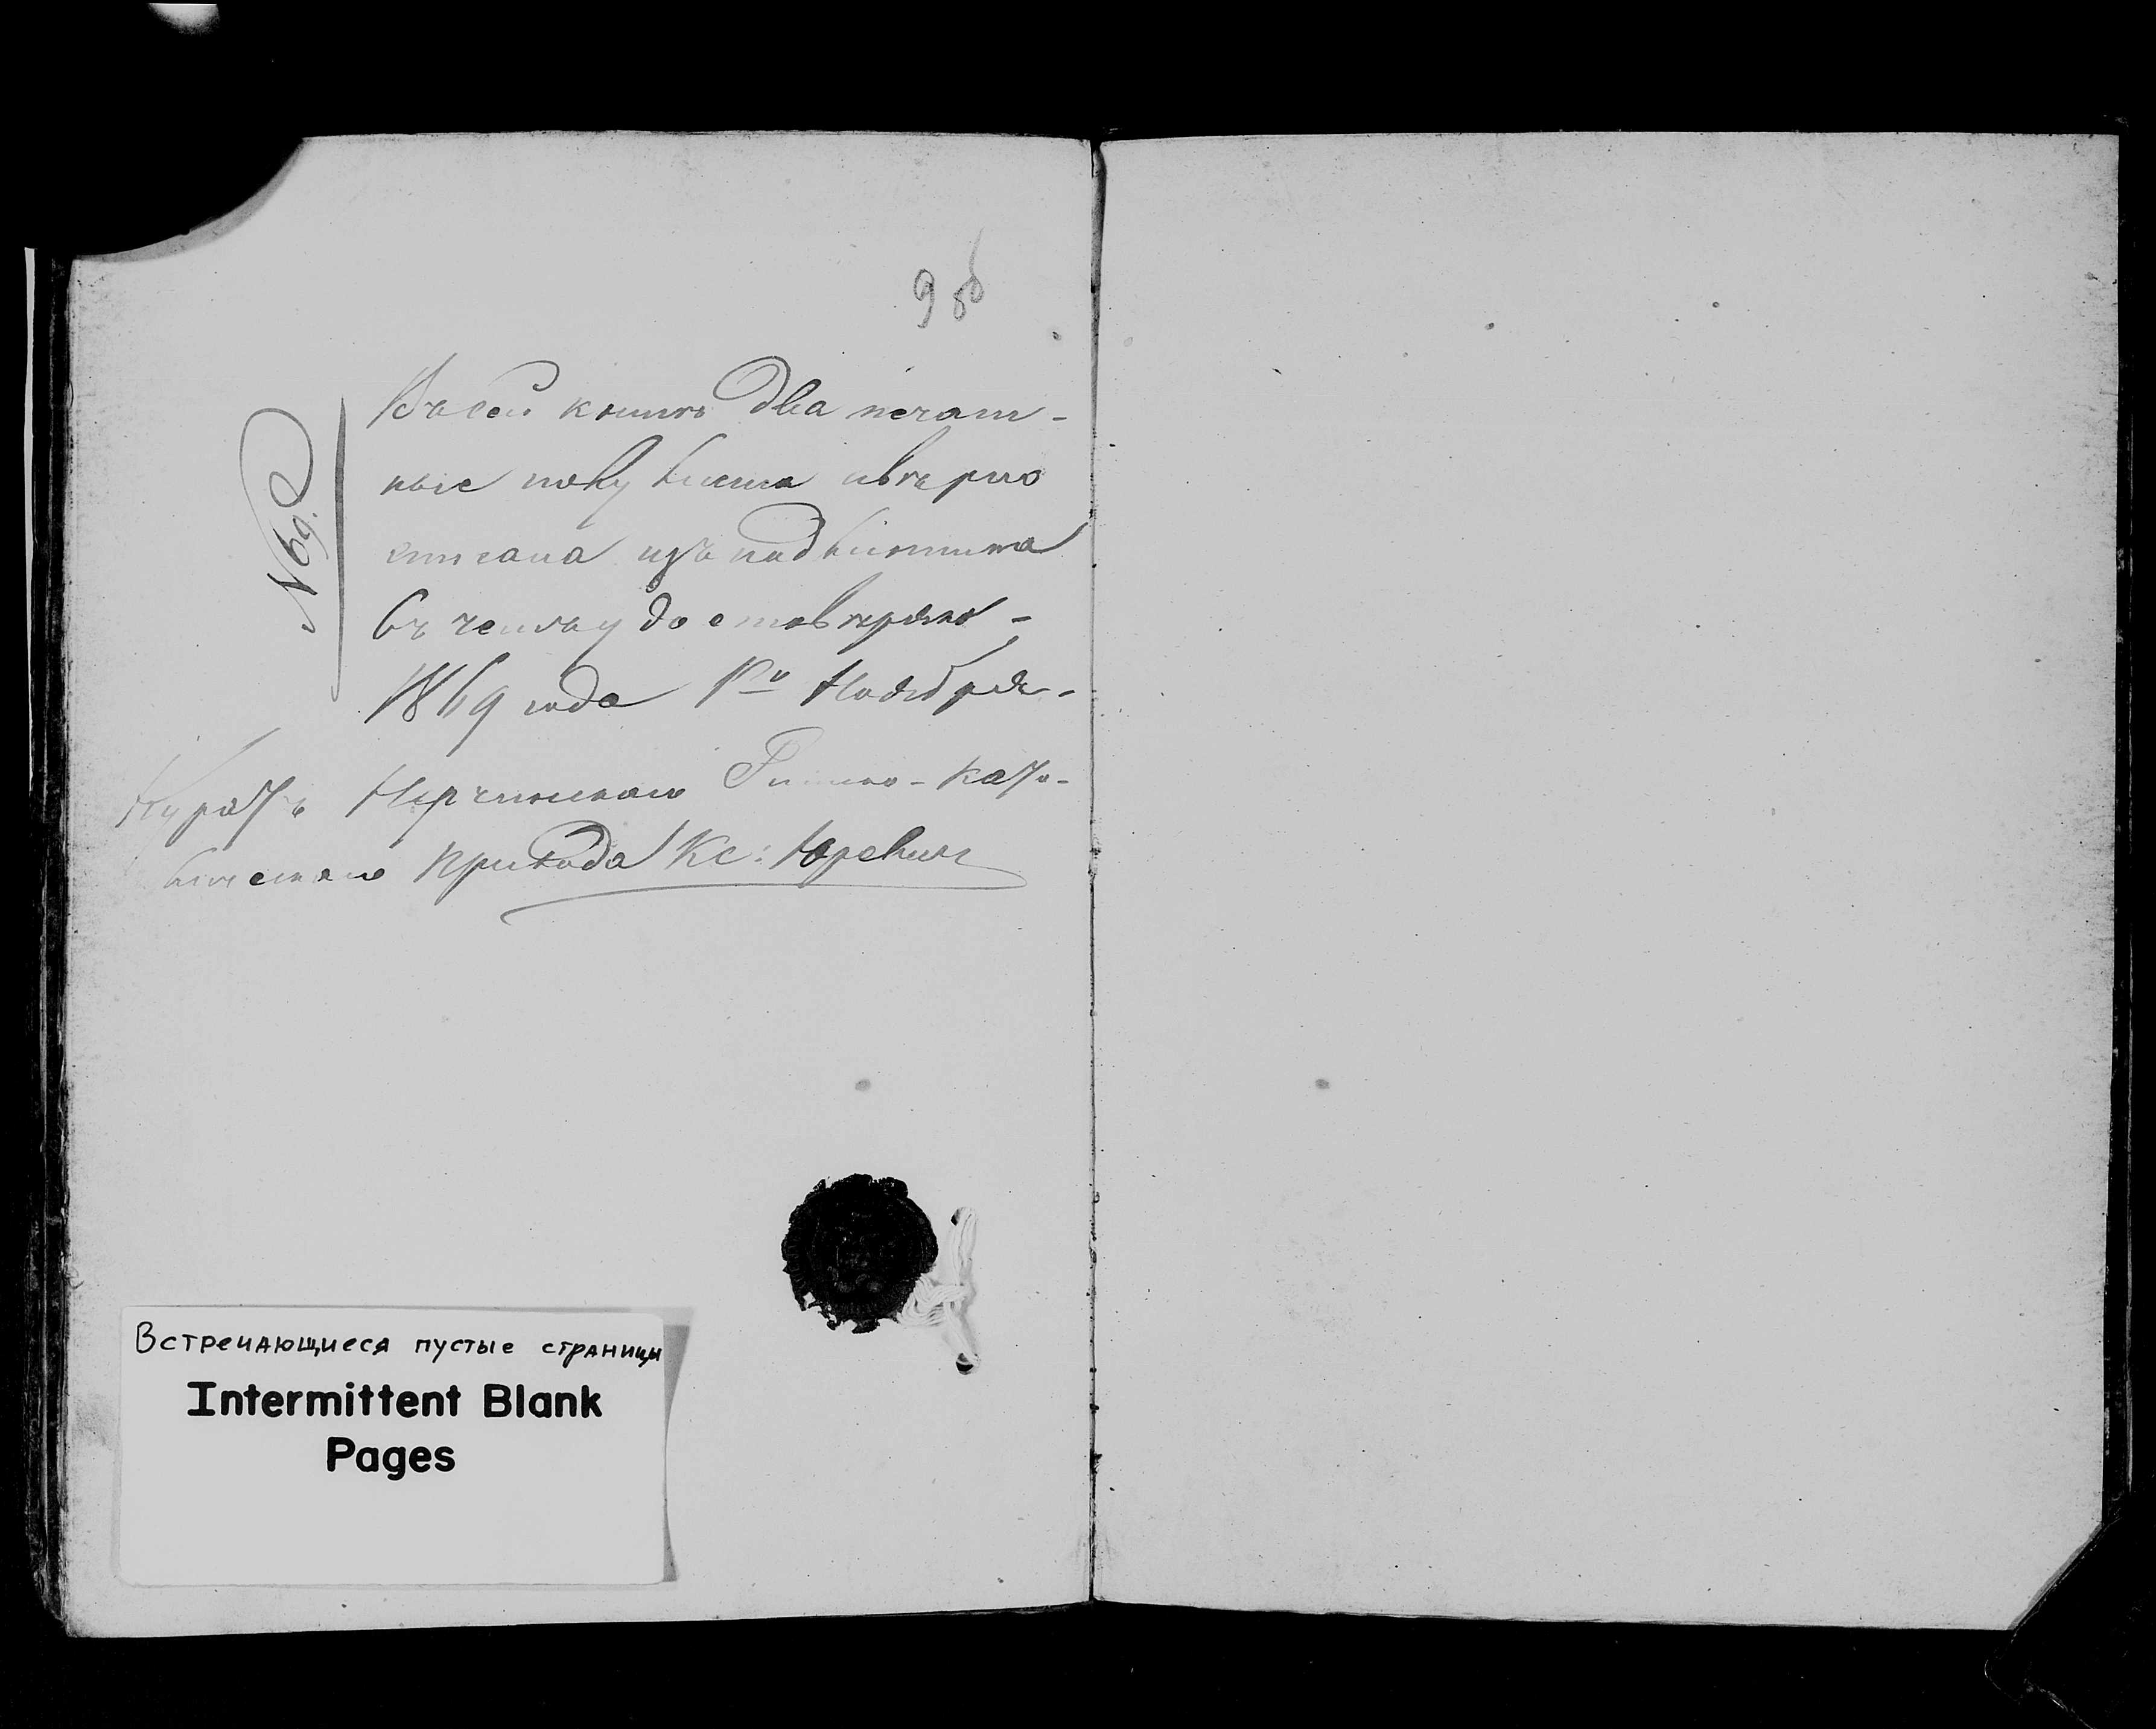 9 об
№ 69.
Въ сей книгѣ два печат-
ные полулиста и вѣрно
списана изъ подлинника
въ чемъ удостовѣряю -
1869 года 1го Ноября -
Куратъ Нерчинскаго Римско-Като-
лическаго Прихода Кс: Юревичъ
Встречающиеся пустые страницы
Intermittent Blank
Pages